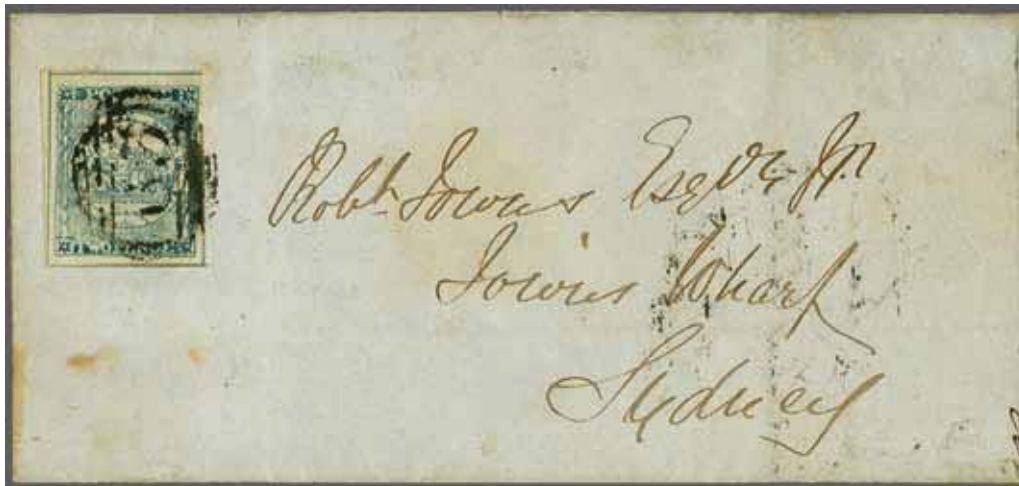 Robt. Towns Esqre J.P.
Towns Wharf
Sydney